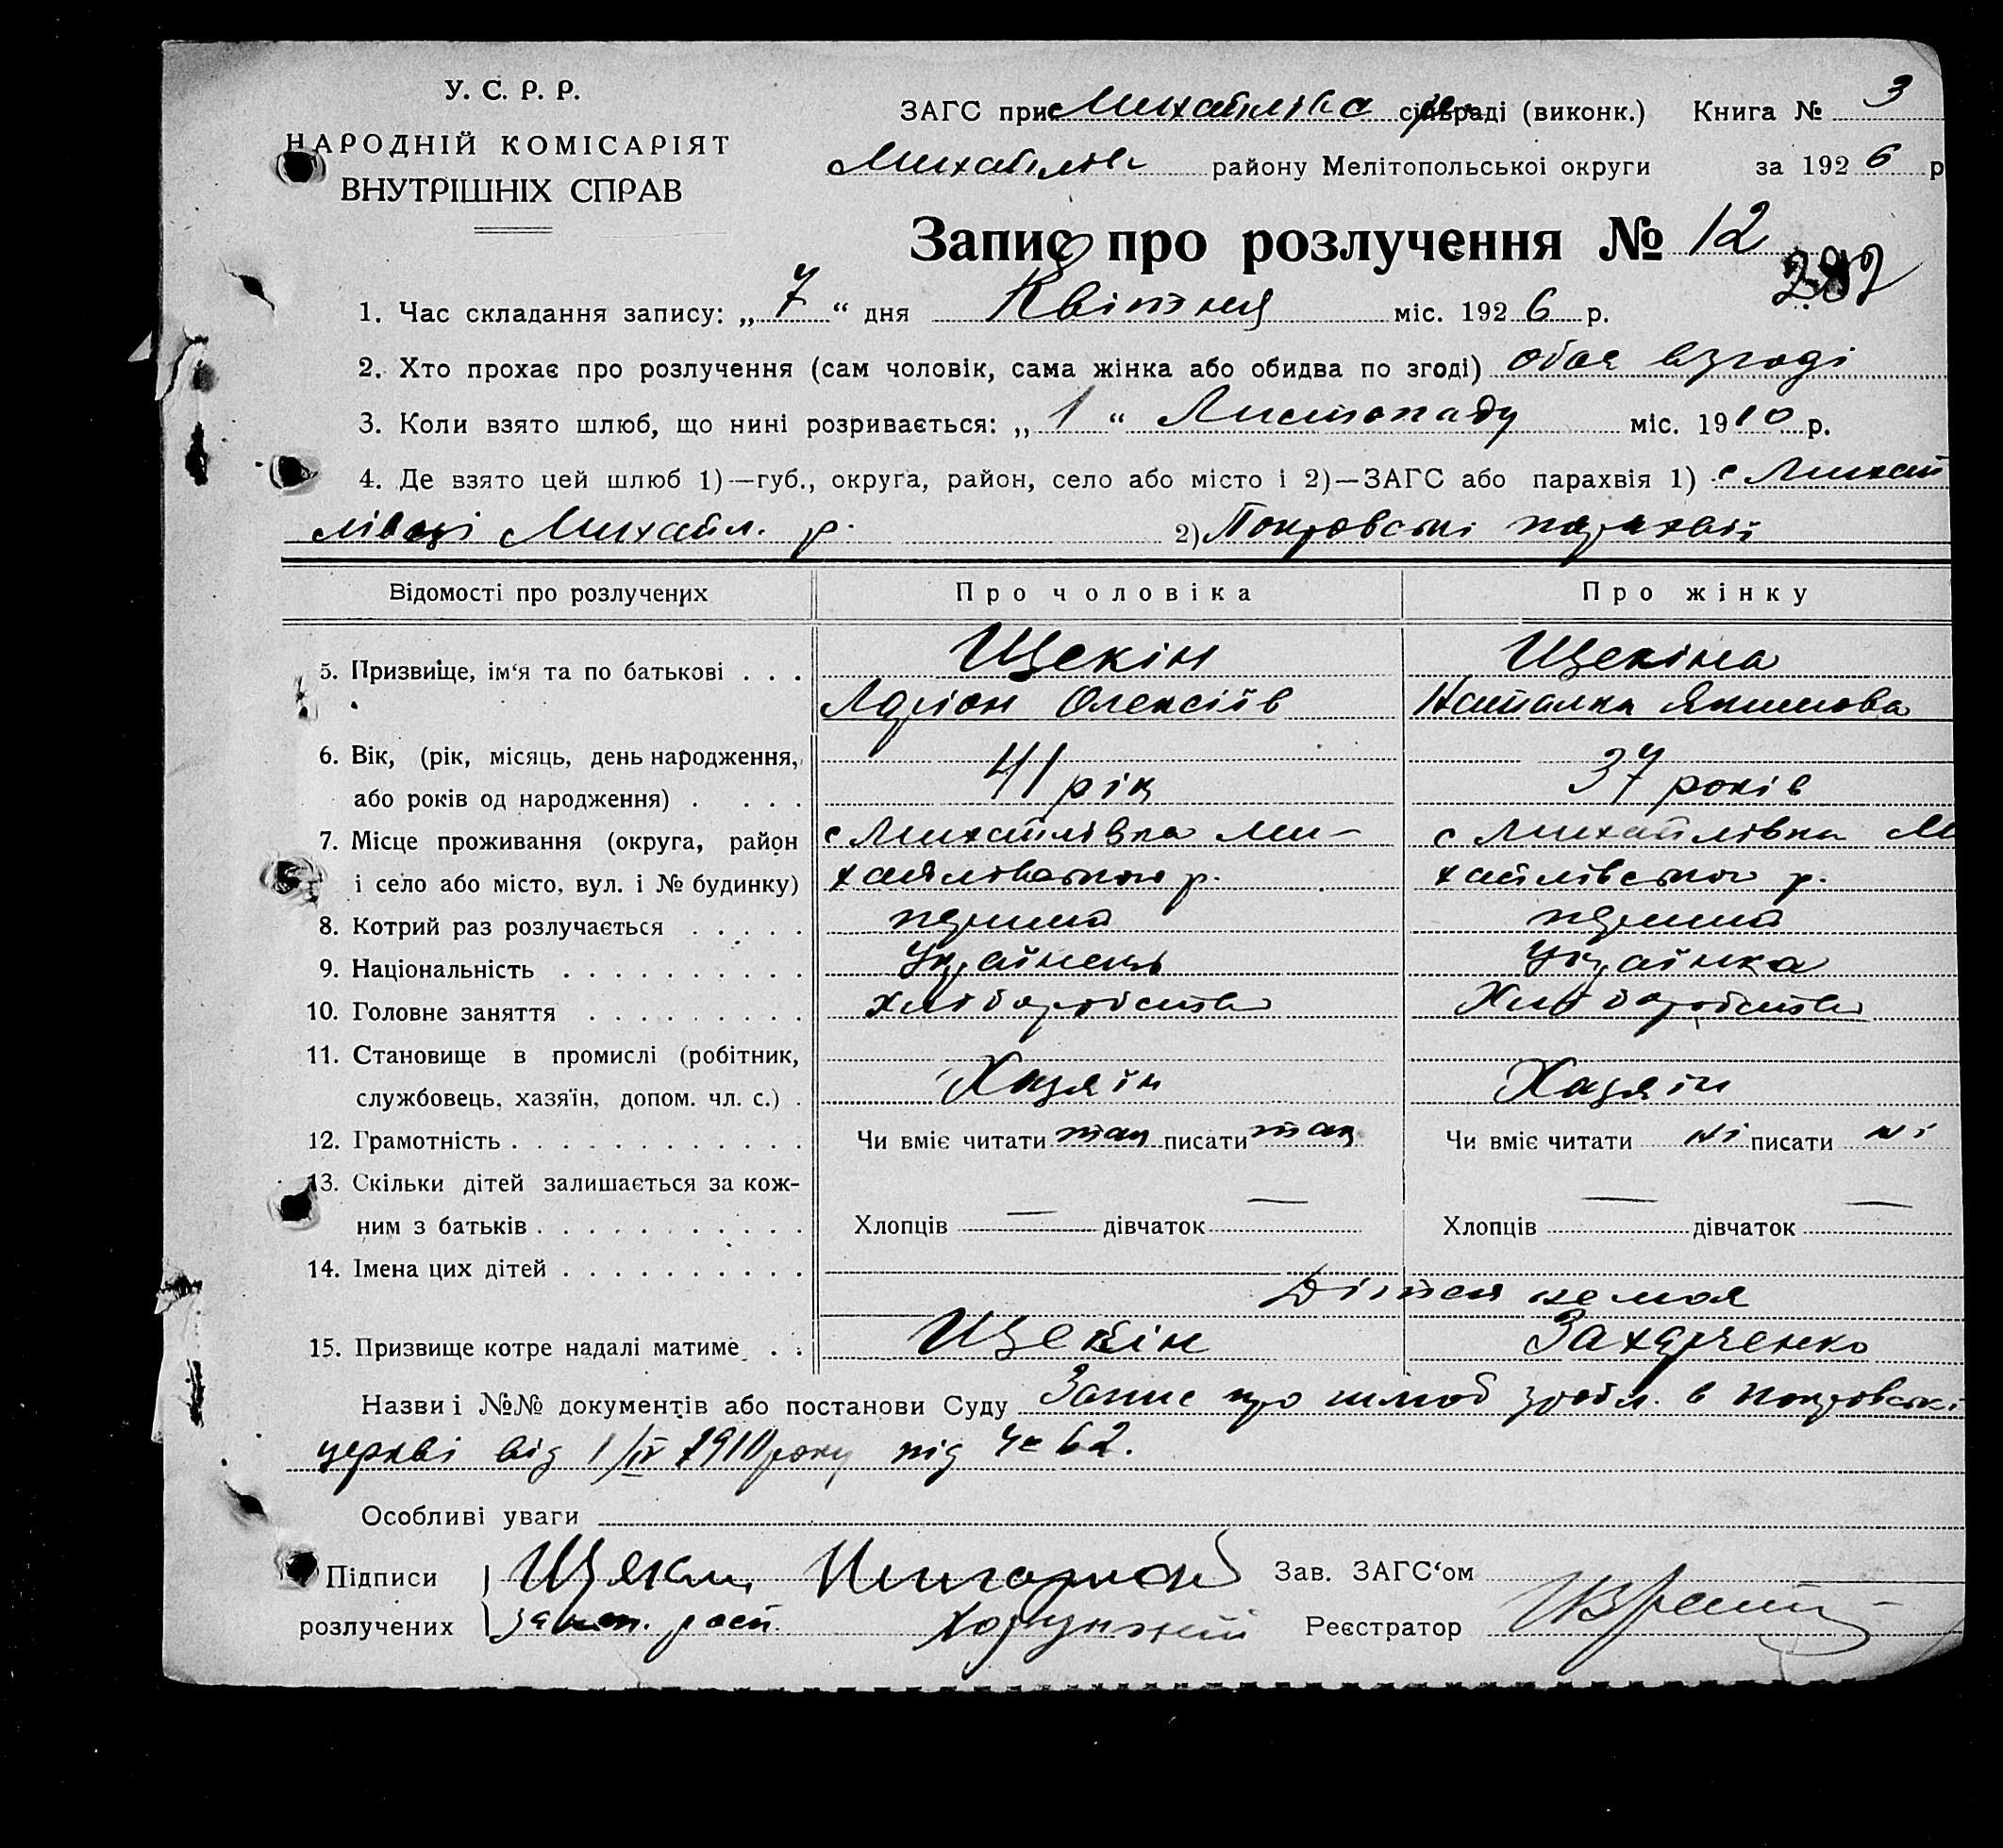 У. С. Р. Р.
НАРОДНІЙ КОМІСАРІЯТ
ВНУТРІШНІХ СПРАВ
ЗАГС при Михайлівка сільраді (виконк.) Книга № 3
Михайлів району Мелітопольськоі округи за 1926 р
Запис про розлучення № 12
1. Час складання запису: „7“ дня Квітня міс. 1926 р.
2. Хто прохає про розлучення (сам чоловік, сама жінка або обидва по згоді) обоя взгоді
3. Коли взято шлюб, що нині розривається: „1“ Листопаду міс. 1910 р.
4. Де взято цей шлюб 1)—губ., округа, район, село або місто і 2)—ЗАГС або парахвія 1) с Михай
лівці Михайл. р. 2) Покровські парахвії
Відомості про розлучених Про чоловіка Про жінку
5. Призвище, ім‘я та по батькові . . . Щекін Щекіна
Адріон Олексіїв Наталка Якимова
6. Вік, (рік, місяць, день народження,
або років од народження) . . . . 41 рік 37 років
7. Місце проживання (округа, район с Михайлівка Ми- с Михайлівка М
і село або місто, вул. і № будинку) хайлівського р. хайлівського р.
8. Котрий раз розлучається . . . . . перший перший
9. Національність . . . . . . . . . . Українець Українка
10. Головне заняття . . . . . . . . . хліборобство Хліборобство
11. Становище в промислі (робітник,
службовець, хазяїн, допом. чл. с.) . Хазяїн Хазяїн
12. Грамотність . . . . . . . . . . . . Чи вміє читати так писати так Чи вміє читати ні писати ні
13. Скільки дітей залишається за кож-
ним з батьків . . . . . . . . . . . Хлопців — дівчаток — Хлопців — дівчаток —
14. Імена цих дітей . . . . . . . . . .
Дітей немая
15. Призвище котре надалі матиме . . Щекін Захарченко
Назви і №№ документів або постанови Суду Запис про шлюб зробл. в Покровські
церкві від 1/IV 1910 року під Ч. 62.
Особливі уваги
Підписи Зав. ЗАГС‘ом
розлучених за неп. росп. Реєстратор